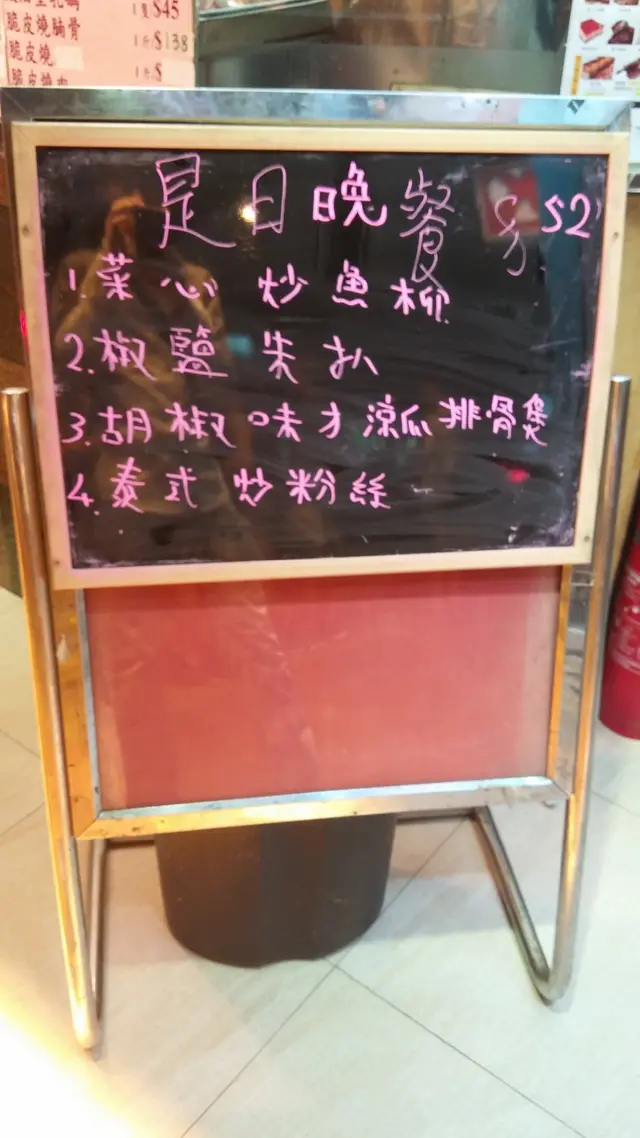 1隻$45
脆皮燒腩骨
1斤$138
脆皮燒
1斤$
脆皮燒肉
是日晚餐 $52
1.菜心炒魚柳
2.椒鹽朱扒
3.胡椒味才涼瓜排骨煲
4.泰式炒粉絲